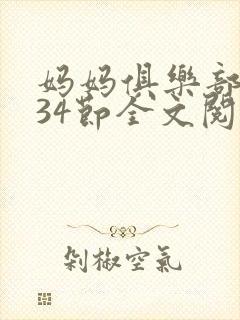 妈妈俱樂部
34節全文閱
剁椒空氣